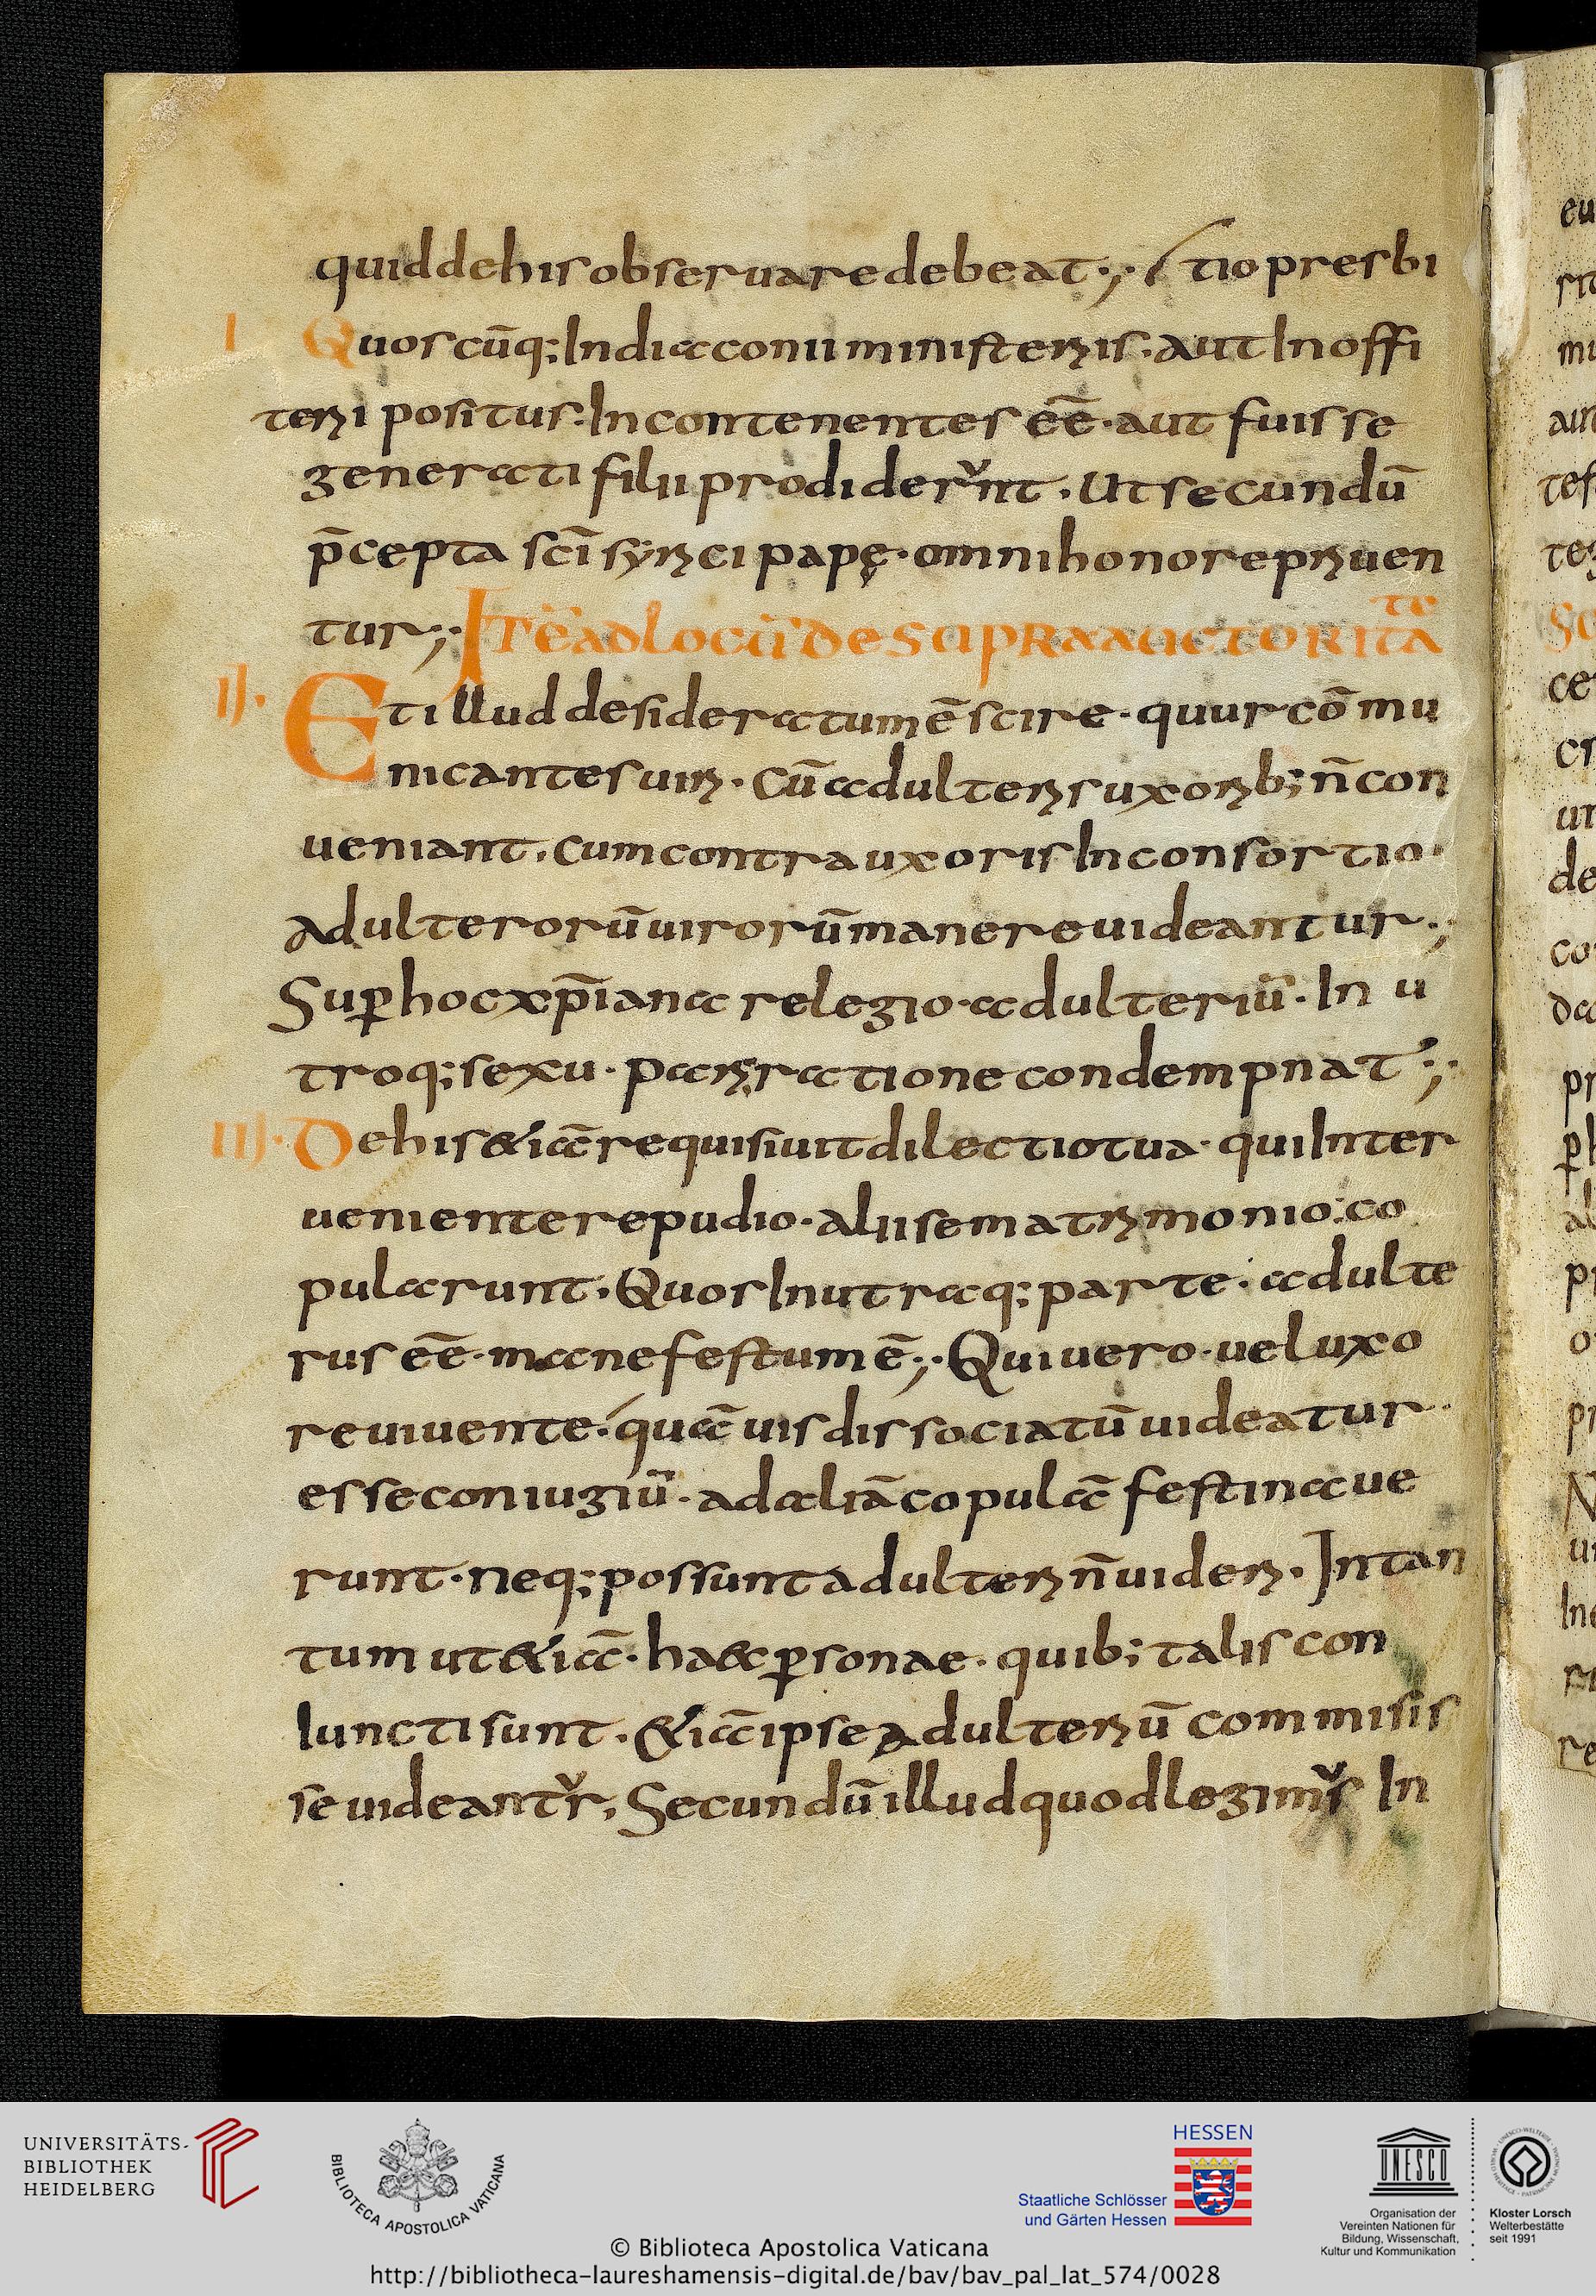 quid de his obseruare debeat ;· / tio presbi
I Quoscūq; In diaconii ministeriis · aut In offi
terii positus · Incontenentes eē · aut fuisse
generati filii prodiderunt · Ut secundū
p̄cepta sc̄i syrici papę · omni honore priuen
tur ;· Itē ad locū de supra auctorita
te
II · Et illud desideratum ē scire · quur cōmu
nicantes uiri · Cū adulteris uxorib; n̄ con
ueniant · cum contra uxoris In consortio ·
adulterorū uirorū manere uideantur ·;
Sup̱ hoc xp̄iana relegio · adulteriū · In u
troq; sexu · pari ratione condempnat' ;·
III · De his &iā requisiuit dilectio tua · qui Inter
ueniente repudio · alii se matrimonio : co
pularunt · Quos In utraq; parte · adulte
rus eē · manefestum ē ;· Qui uero · uel uxo
re uiuente · quāuis dissociatū uideatur ·
esse coniugiū · ad aliā copulā festinaue
runt · neq; possunt adulteri n̄ uideri · Intan
tum ut &iā · hae& p̱sonae · quib; talis con
Iuncti sunt · &iā ipse adulteriū commisis
se uideantur, Secundū illud quod legimus In
eu
UNIVERSITÄTS-
BIBLIOTHEK
HEIDELBERG
BIBLIOTECA APOSTOLICA VATICANA
HESSEN
Staatliche Schlösser
und Gärten Hessen
UNESCO
Organisation der
Vereinten Nationen für
Bildung, Wissenschaft,
Kultur und Kommunikation
Kloster Lorsch
Welterbestätte
seit 1991
© Biblioteca Apostolica Vaticana
http://bibliotheca-laureshamensis-digital.de/bav/bav_pal_lat_574/0028